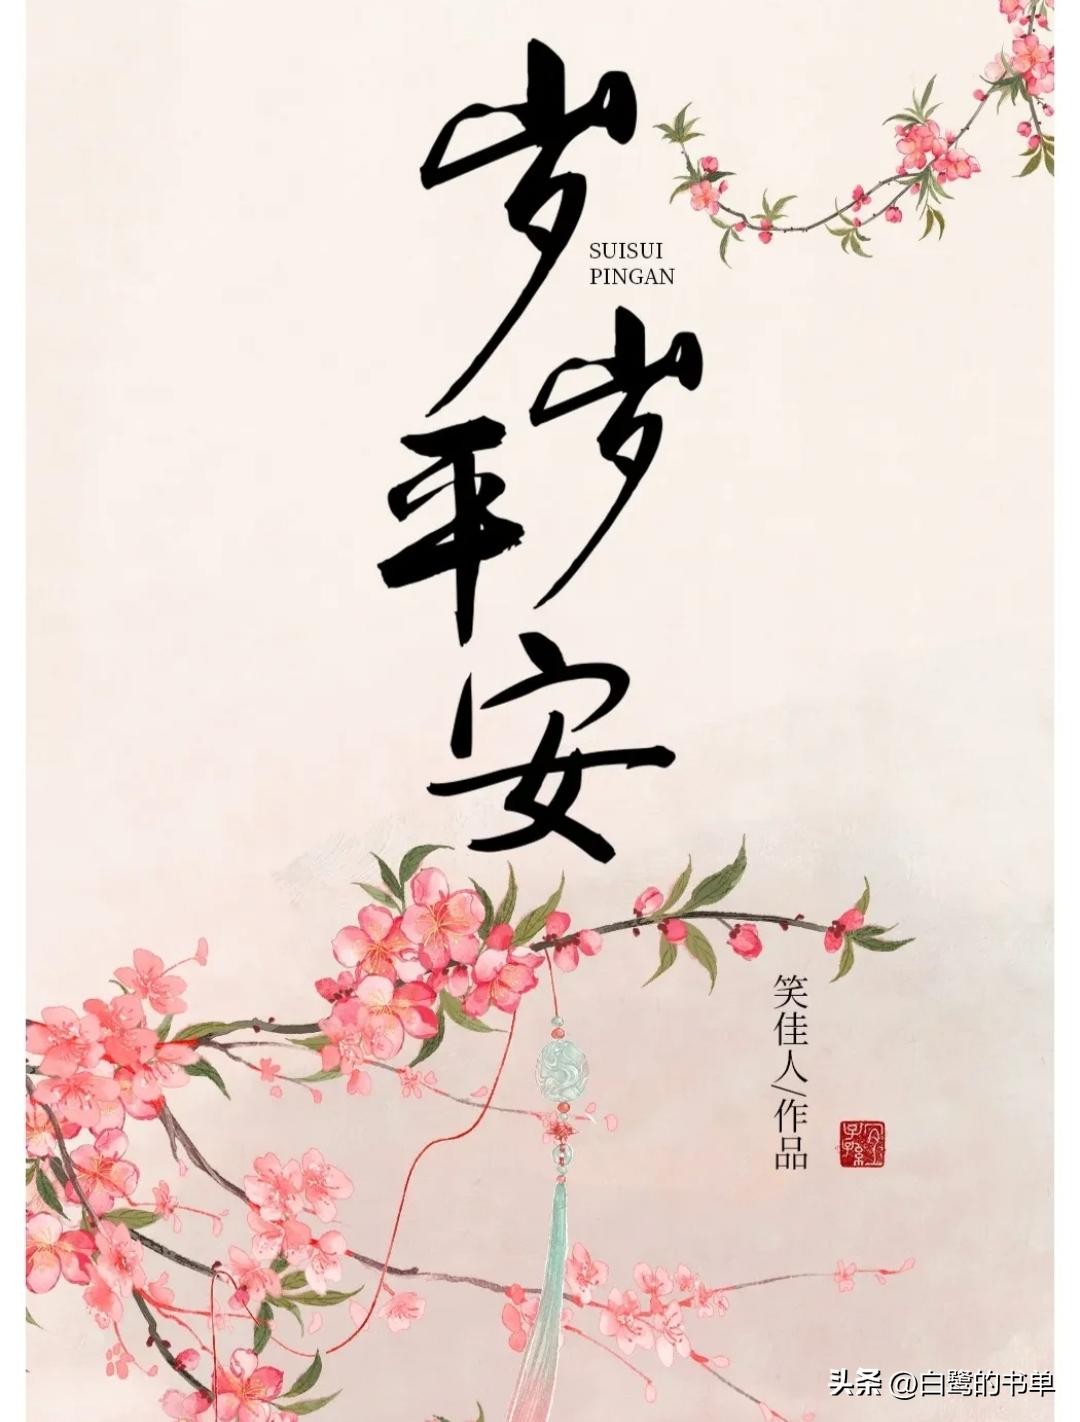 岁岁平安
SUISUI
PINGAN
笑佳人/作品
头条 @白鹭的书单